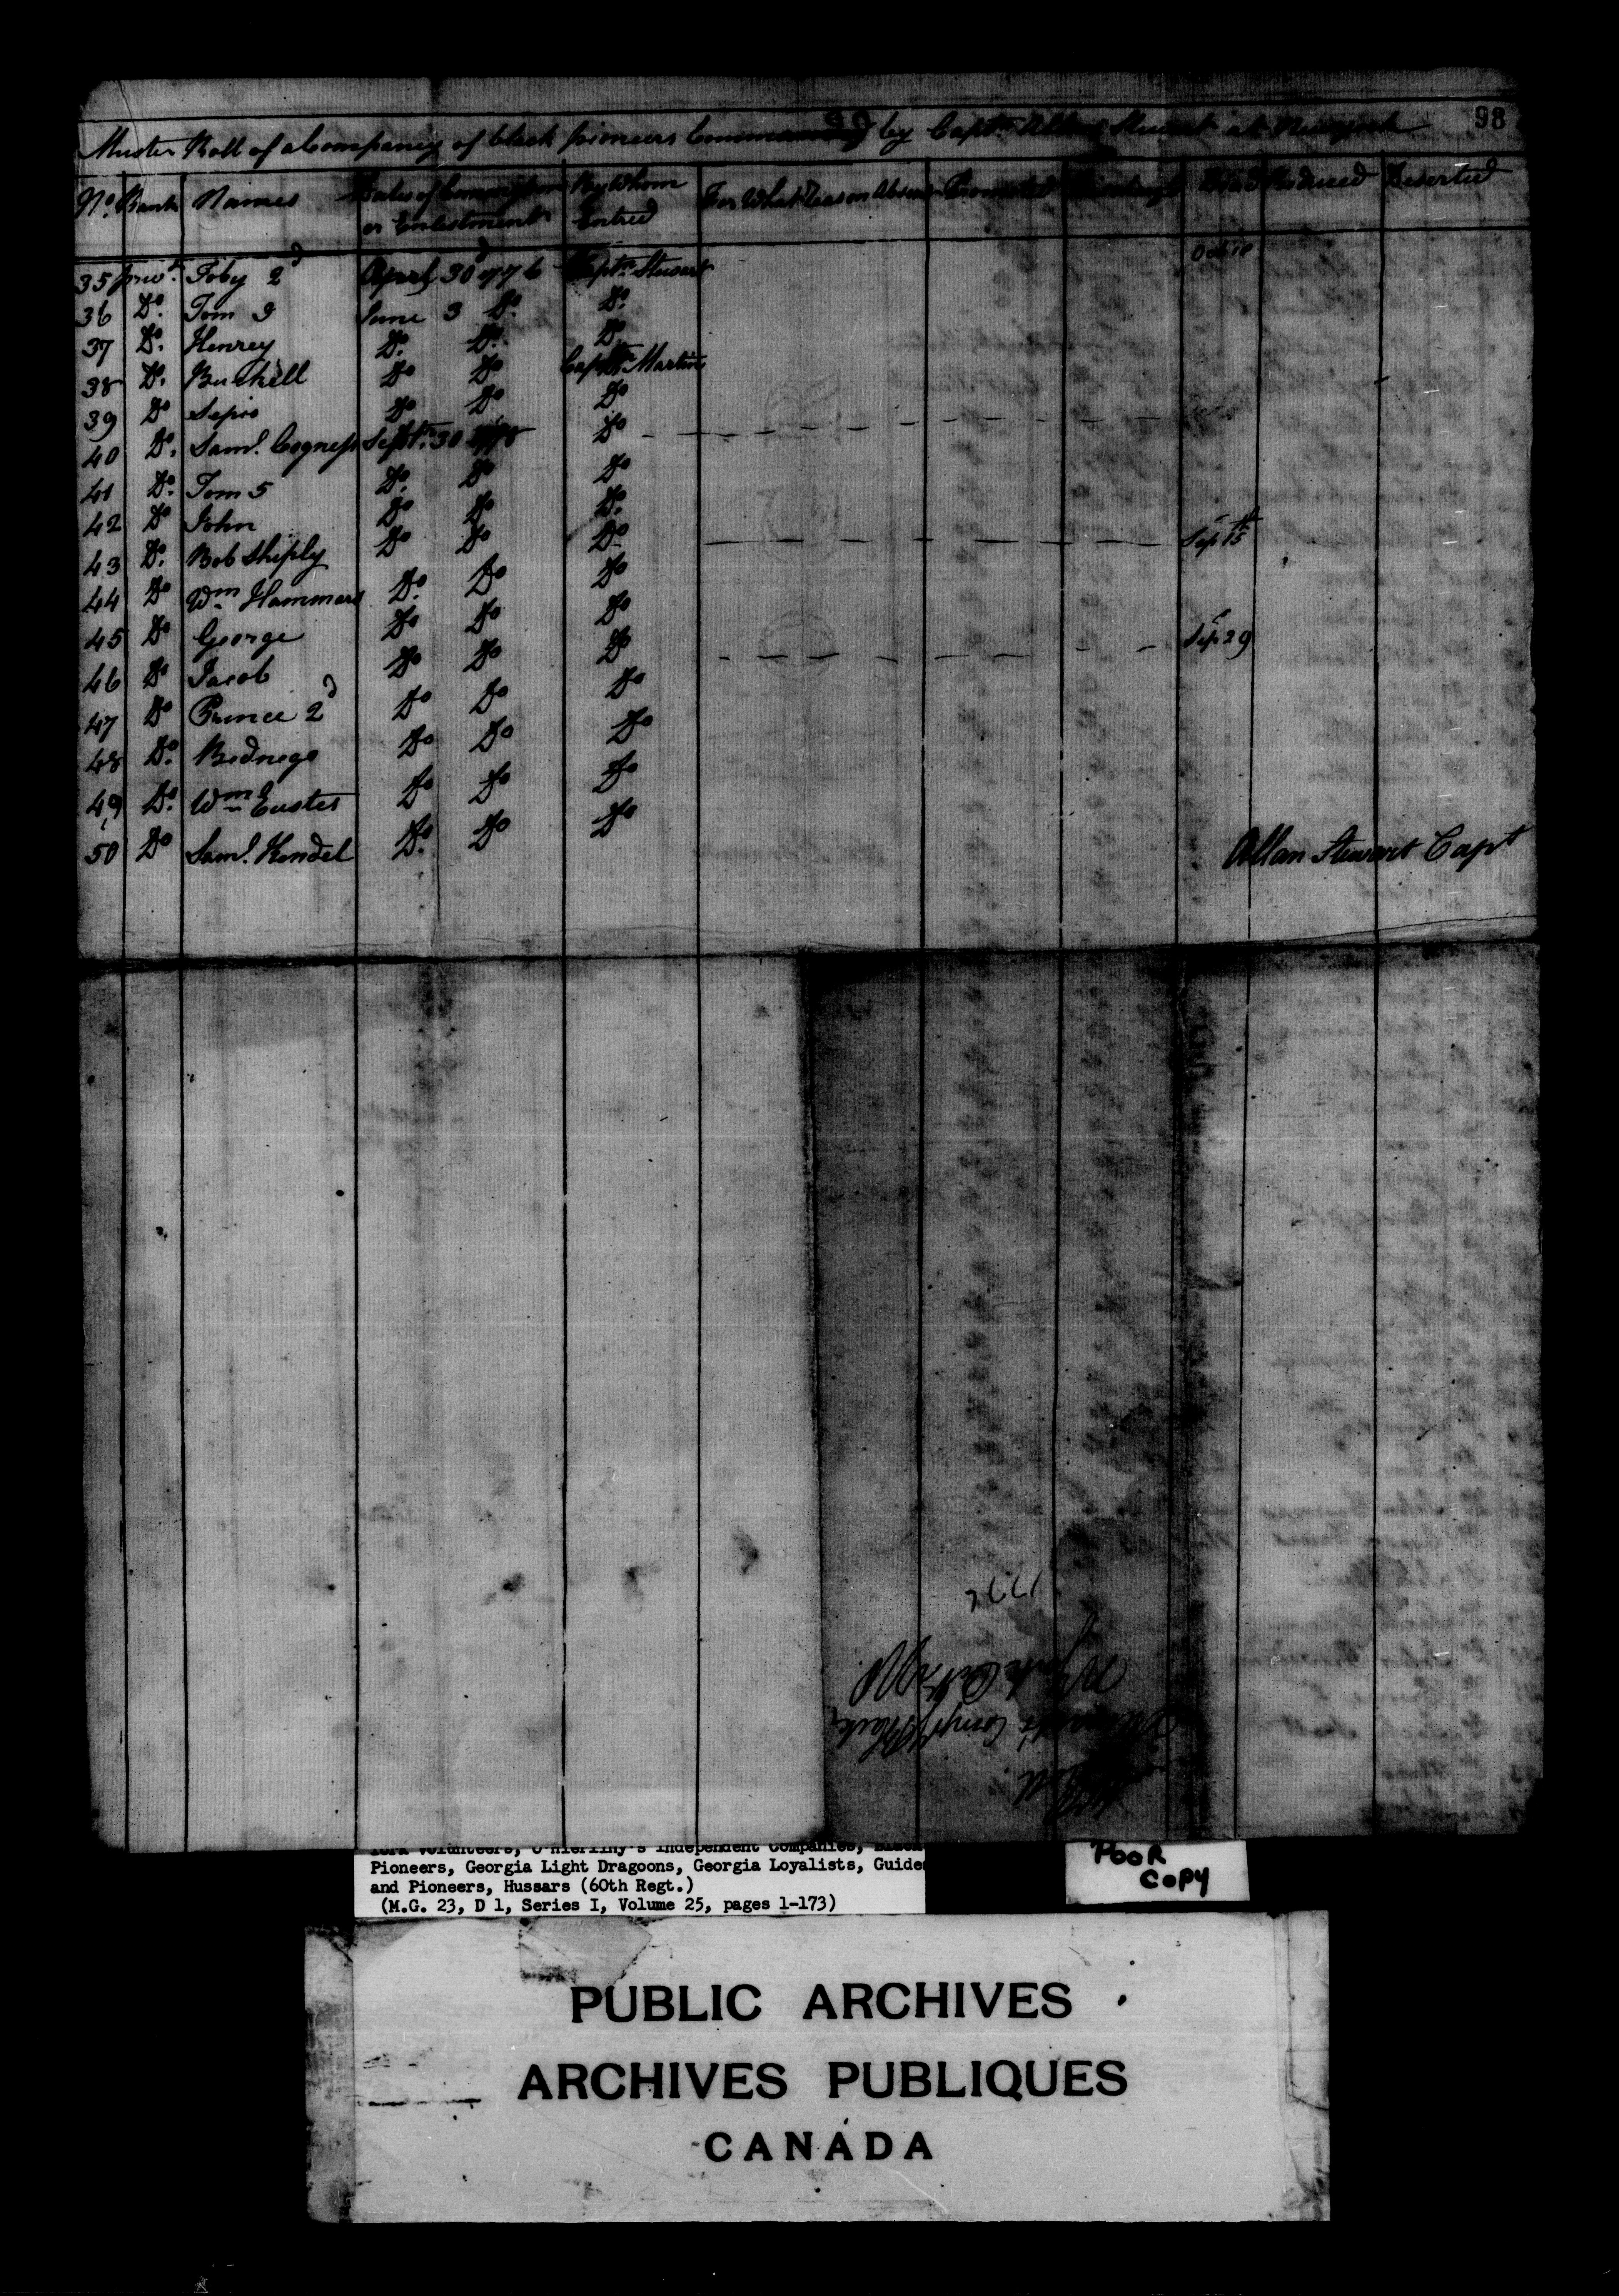 98
Muster Roll of a Company of black pioneers Commanded by Captn Allan Stewart at Newyork
No. Rank Names Dates of Commission or Enlistment By Whom Entred For What Reason Absent Promoted Discharged Dead Reduced Deserted
35 privt. Toby 2d April 30 1776 Captn Stewart Oct 10
36 Do. Tom 3 June 3 Do. Do.
37 Do. Henrey Do. Do. Do
38 Do. Buskell Do Do Captn Martin
39 Do Sepio Do Do Do
40 Do. Saml. Cogness Septr. 30 1778 Do
41 Do. Tom 5 Do. Do Do
42 Do John Do Do Do.
43 Do. Bob Shiply Do Do Do Sep 15th
44 Do Wm Hammard Do. Do Do
45 Do George Do Do Do
46 Do Jacob Do Do Do Sep 29
47 Do Prince 2d Do Do Do
48 Do. Bednego Do Do Do
49 Do. Wm Custes Do Do Do
50 Do Saml. Kendel Do. Do Do
Allan Stewart Capt
Roll
Compy Black
York Volunteers, O'Hierihy's Independent Companies, Black
Pioneers, Georgia Light Dragoons, Georgia Loyalists, Guide
and Pioneers, Hussars (60th Regt.)
(M.G. 23, D 1, Series I, Volume 25, pages 1-173)
POOR
COPY
PUBLIC ARCHIVES
ARCHIVES PUBLIQUES
CANADA